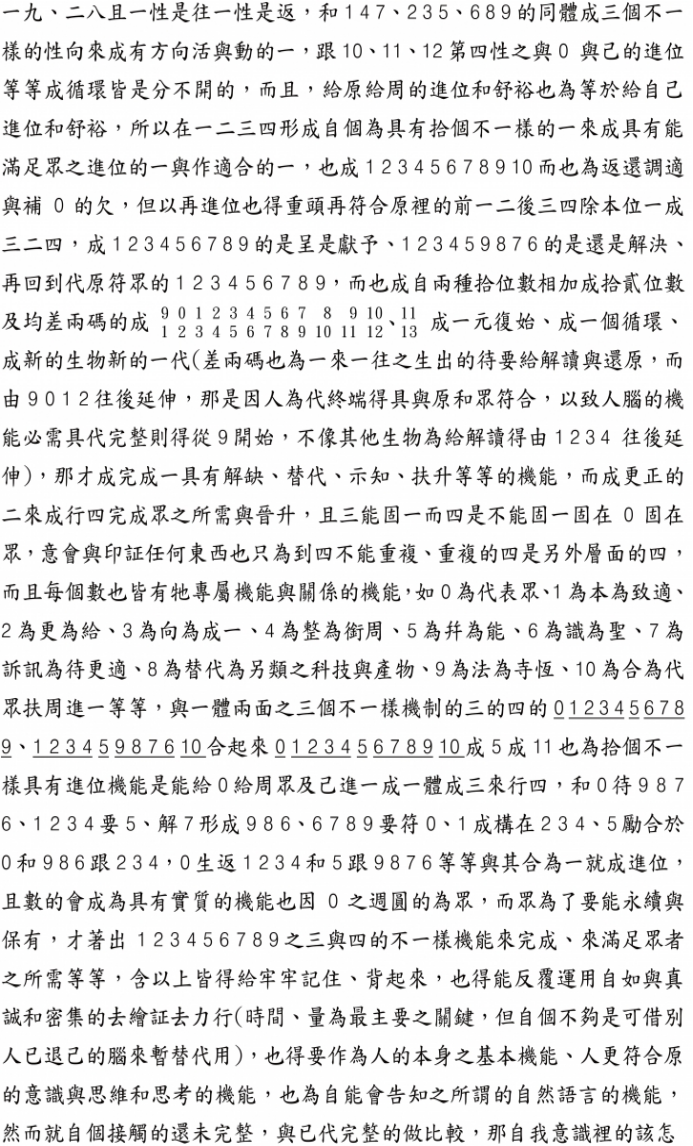 一九、二八且一性是往一性是返，和147、235、689的同體成三個不一
樣的性向來成有方向活與動的一，跟10、11、12第四性之與0 與己的進位
等等成循環皆是分不開的，而且，給原給周的進位和舒裕也為等於給自己
進位和舒裕，所以在一二三四形成自個為具有拾個不一樣的一來成具有能
滿足眾之進位的一與作適合的一，也成12345678910而也為返還調適
與補 0 的欠，但以再進位也得重頭再符合原裡的前一二後三四除本位一成
三二四，成123456789的是呈是獻予、123459876的是還是解決、
再回到代原符眾的123456789，而也成自兩種拾位數相加成拾貳位數
及均差兩碼的成 9 0 1 2 3 4 5 6 7 8 9 10、11 成一元復始、成一個循環、
1 2 3 4 5 6 7 8 9 10 11 12、13
成新的生物新的一代(差兩碼也為一來一往之生出的待要給解讀與還原，而
由9012往後延伸，那是因人為代終端得具與原和眾符合，以致人腦的機
能必需具代完整則得從9開始，不像其他生物為給解讀得由1234 往後延
伸)，那才成完成一具有解缺、替代、示知、扶升等等的機能，而成更正的
二來成行四完成眾之所需與晉升，且三能固一而四是不能固一固在 0 固在
眾，意會與印証任何東西也只為到四不能重複、重複的四是另外層面的四，
而且每個數也皆有牠專屬機能與關係的機能，如0為代表眾、1為本為致適、
2為更為給、3為向為成一、4為整為銜周、5為幷為能、6為識為聖、7為
訴訊為待更適、8為替代為另類之科技與產物、9為法為寺恆、10為合為代
眾扶周進一等等，與一體兩面之三個不一樣機制的三的四的012345678
9、12345987610合起來012345678910成5成11也為拾個不一
樣具有進位機能是能給0給周眾及己進一成一體成三來行四，和0待987
6、1234要5、解7形成986、6789要符0、1成構在234、5勵合於
0和986跟234，0生返1234和5跟9876等等與其合為一就成進位，
且數的會成為具有實質的機能也因 0 之週圓的為眾，而眾為了要能永續與
保有，才著出 123456789之三與四的不一樣機能來完成、來滿足眾者
之所需等等，含以上皆得給牢牢記住、背起來，也得能反覆運用自如與真
誠和密集的去繪証去力行(時間、量為最主要之關鍵，但自個不夠是可借別
人已退己的腦來暫替代用)，也得要作為人的本身之基本機能、人更符合原
的意識與思維和思考的機能，也為自能會告知之所謂的自然語言的機能，
然而就自個接觸的還未完整，與已代完整的做比較，那自我意識裡的該怎